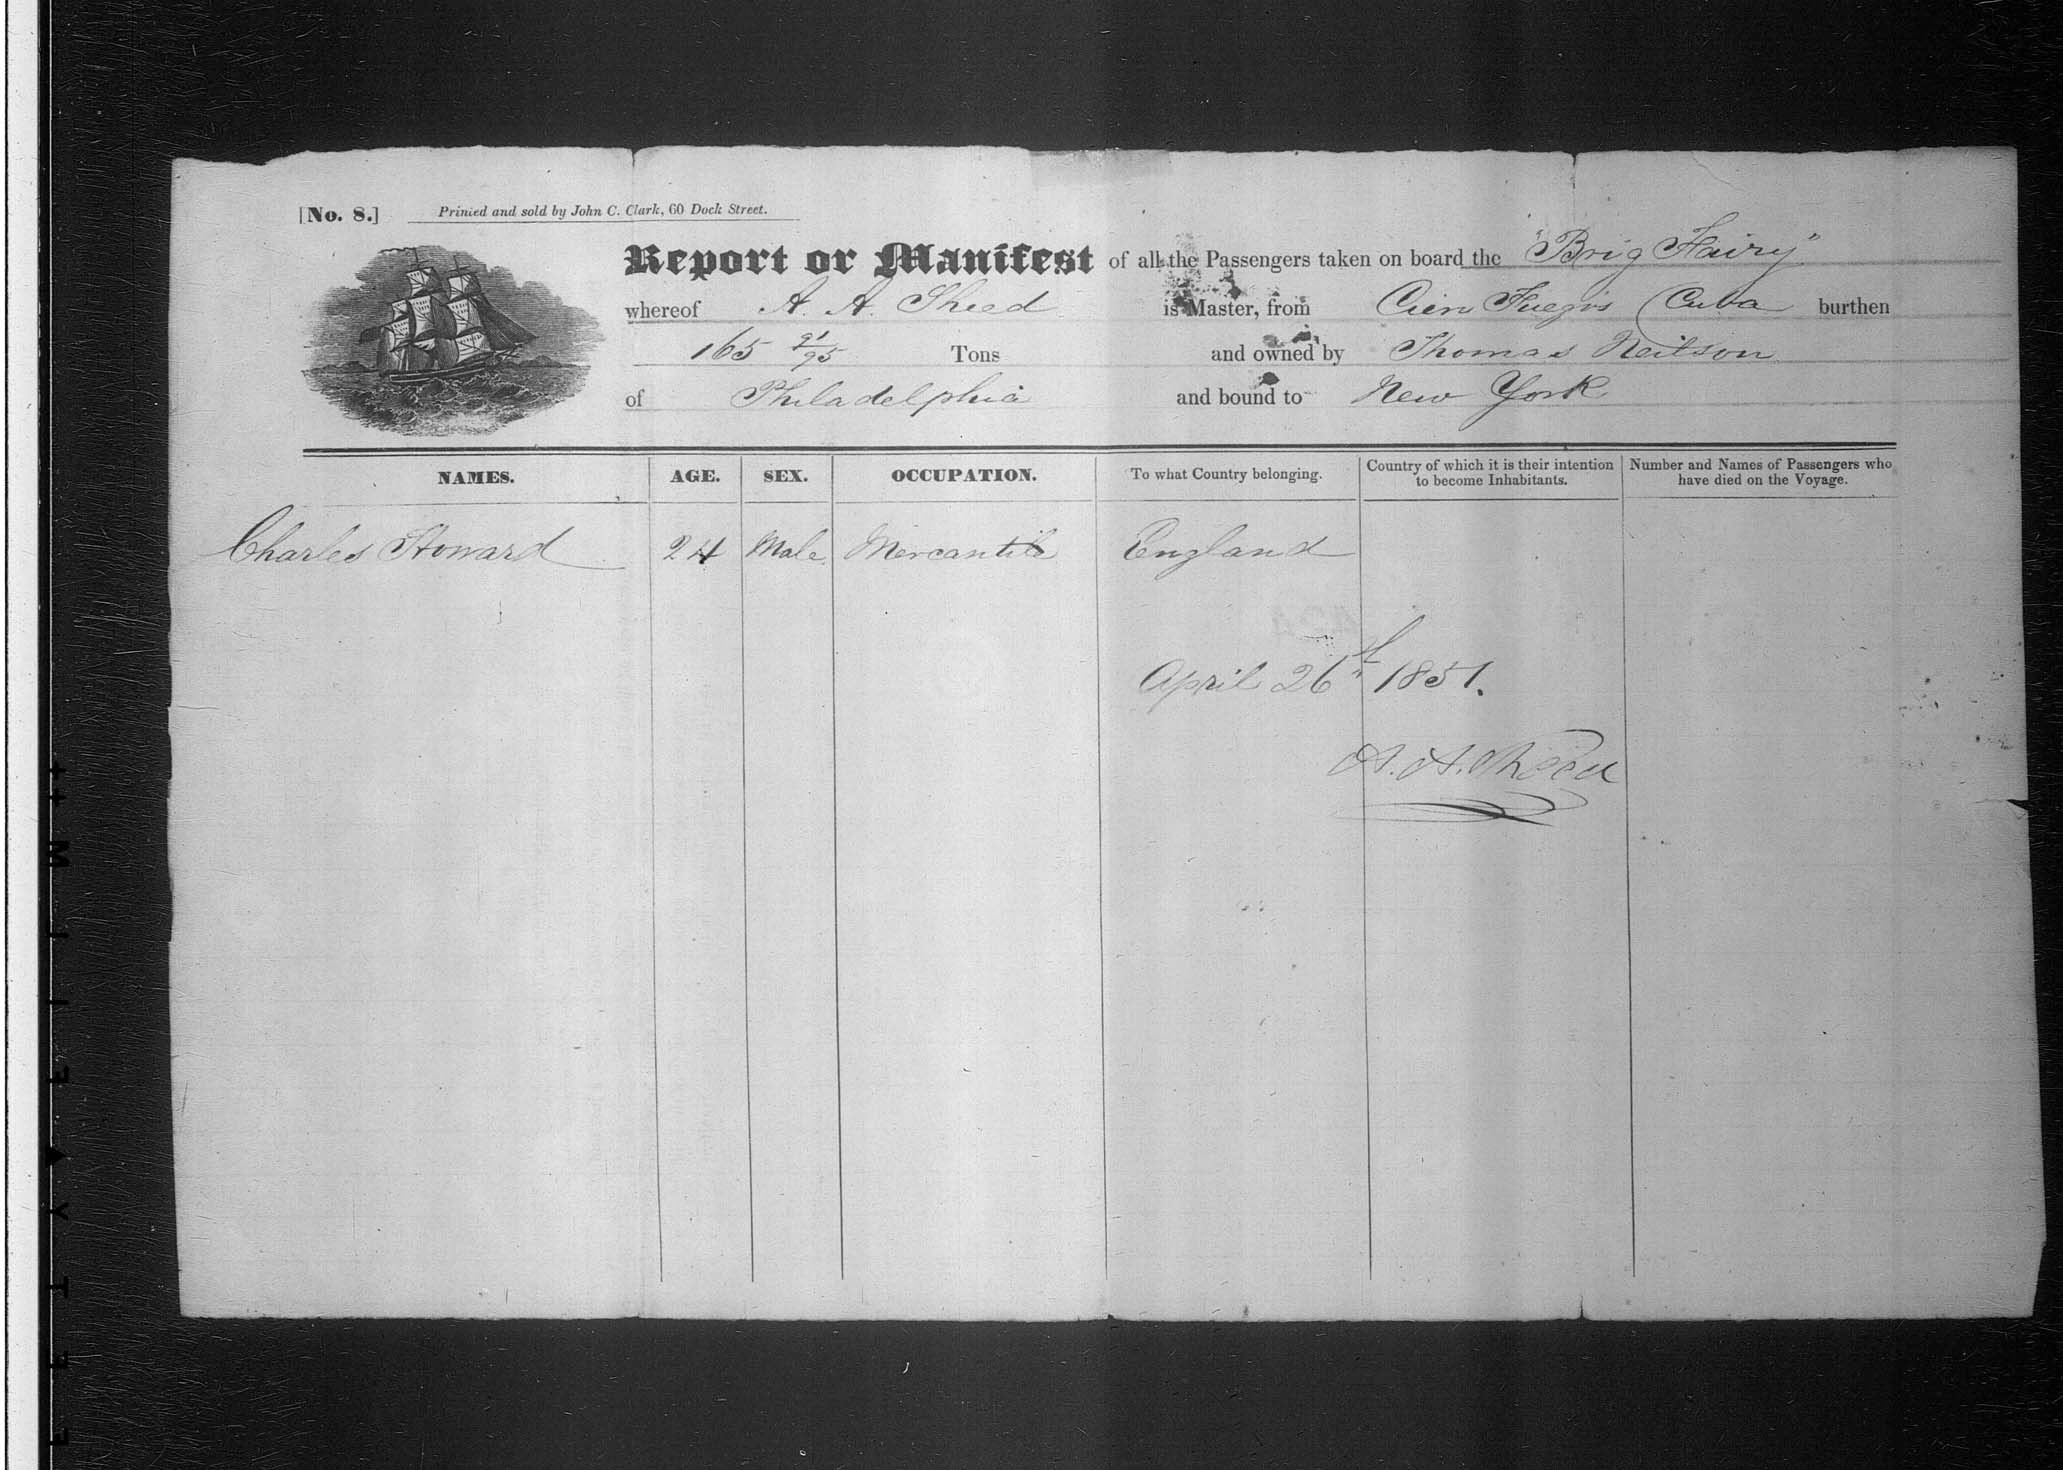 [No. 8.] Printed and sold by John C. Clark, 60 Dock Street.
Report or Manifest of all the Passengers taken on board the "Brig Fairy"
whereof A. A. Sheed is Master, from Cien Fuegos (Cuba burthen
165 91/95 Tons and owned by Thomas Neilson
of Philadelphia and bound to New York
NAMES. AGE. SEX. OCCUPATION. To what Country belonging. Country of which it is their intention to become Inhabitants. Number and Names of Passengers who have died on the Voyage.
Charles Howard 24 Male Mercantile England
April 26th 1851.
A. A. Sheed